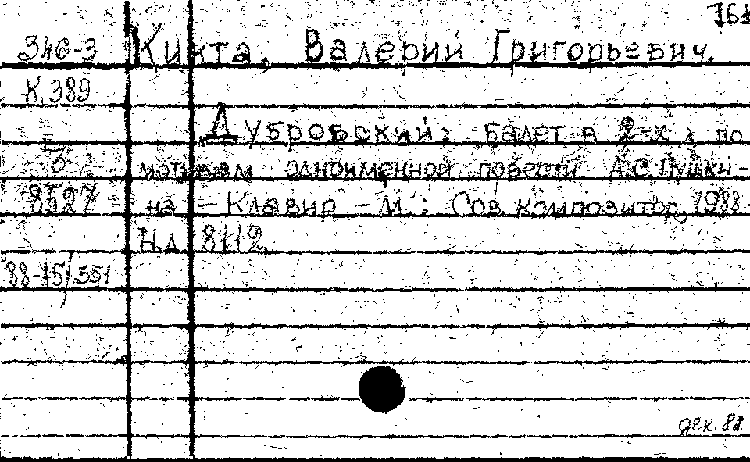 161
346-3 Кикта, Валерий Григорьевич.
К 389
Дубровский: Балет в 2-х д. по
мотивам одноименной повести А.С. Пушки-
8527 на – Клавир – М.: Сов. композитор, 1988
Н.д. 8112.
88-15/351
дек. 88